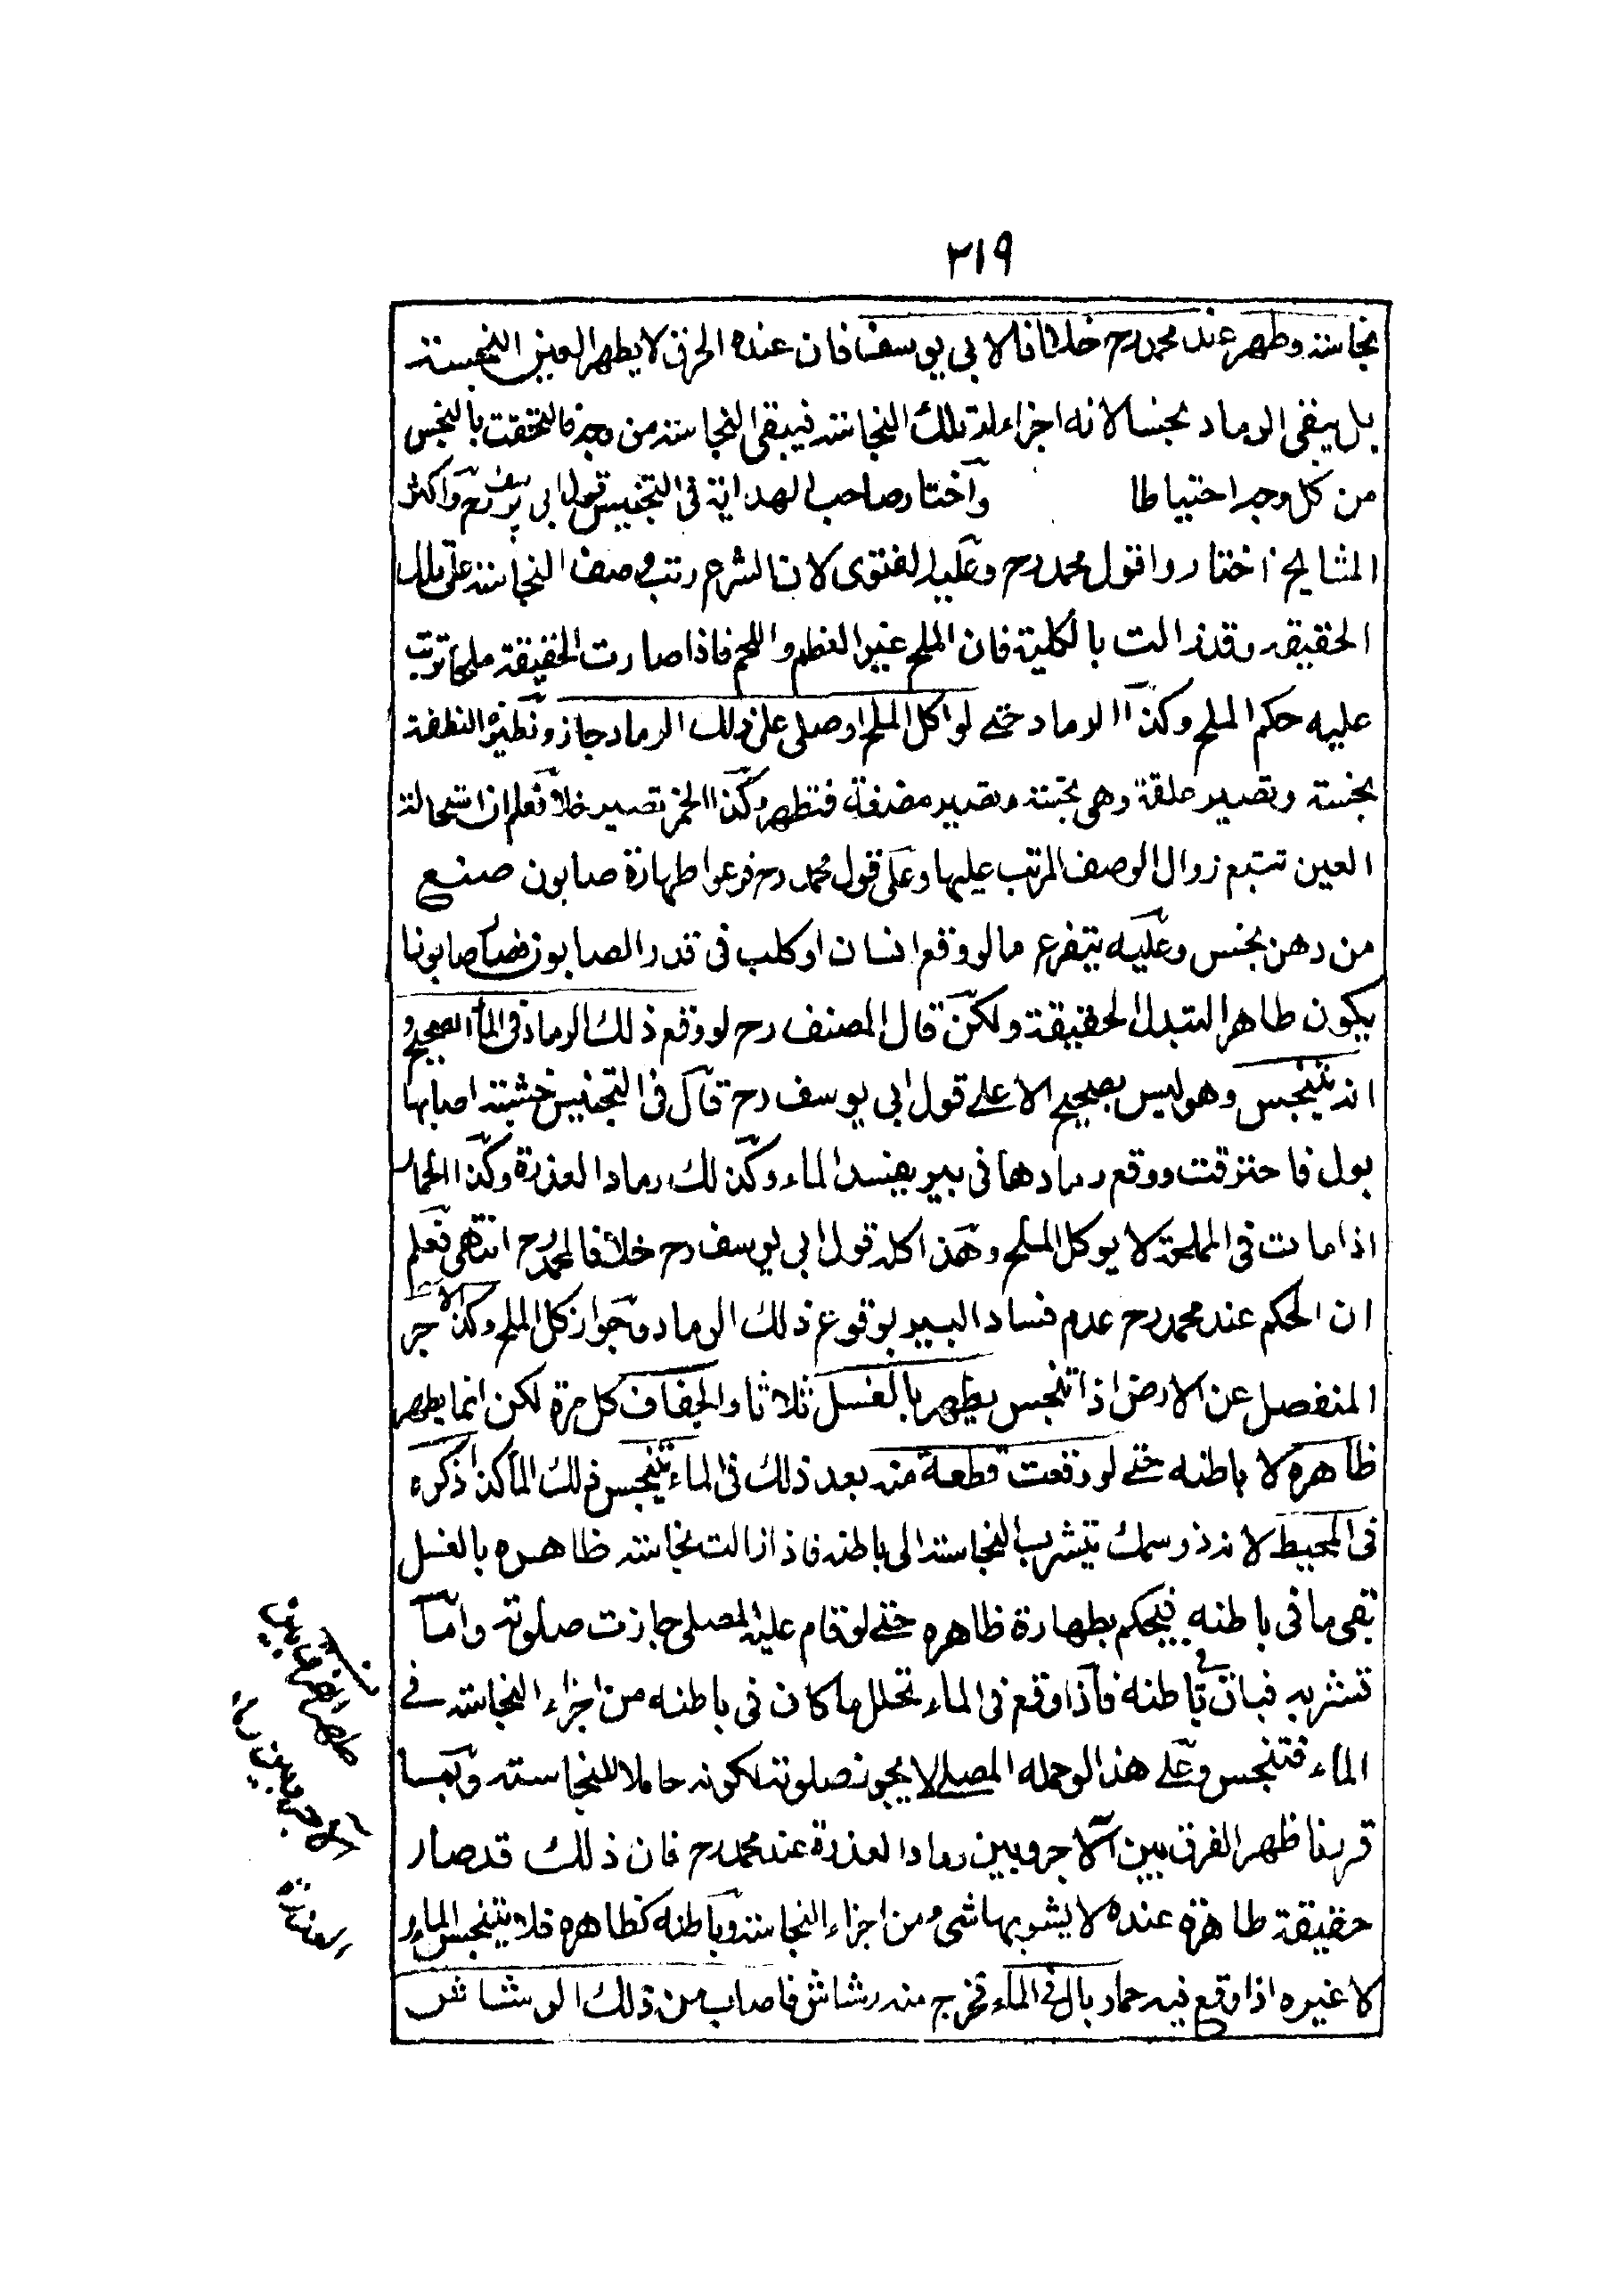 ٣١٩
نجاسته وطهر عند محمد رح خلافا لابي يوسف فان عنده الحرق لا يطهر العين النجسة
بل يبقى الرماد نجسا لانه اجزاء لتلك النجاسة فيبقى النجاسة من وجه فالتحقت بالنجس
من كل وجه احتياطا واختار صاحب الهداية في التجنيس قول ابي يوسف رح واكثر
المشايخ اختاروا قول محمد رح وعليه الفتوى لان الشرع رتب وصف النجاسة على تلك
الحقيقة وقد زالت بالكلية فان الملح غير العظم واللحم فاذا صارت الحقيقة ملحا ترتب
عليه حكم الملح وكذا الرماد حتى لو اكل الملح او صلى على ذلك الرماد جاز ونظيره النطفة
نجسة وتصير علقة وهي نجسة وتصير مضغة فتطهر وكذا الخمر تصير خلا فعلم ان استحالة
العين تستتبع زوال الوصف المرتب عليها وعلى قول محمد رح فرعوا طهارة صابون صنع
من دهن نجس وعليه يتفرع ما لو وقع انسان او كلب في قدر الصابون فصار صابونا
يكون طاهرا لتبدل الحقيقة ولكن قال المصنف رح لو وقع ذلك الرماد في الماء الصحيح و
انه يتنجس وهو ليس بصحيح الا على قول ابي يوسف رح قال في التجنيس خشبة اصابها
بول فاحترقت ووقع رمادها في بير يفسد الماء وكذلك رماد العذرة وكذا الحمار
اذا مات في المملحة لا يوكل الملح وهذا كله قول ابي يوسف رح خلافا لمحمد رح انتهى فعلم
ان الحكم عند محمد رح عدم فساد البير بوقوع ذلك الرماد وجواز كل الملح وكذا الاجر
المنفصل عن الارض اذا تنجس يطهر بالغسل ثلاثا والجفاف كل مرة لكن انما يطهر
ظاهره لا باطنه حتى لو وقعت قطعة منه بعد ذلك في الماء يتنجس ذلك الماء كذا ذكره
في المحيط لانه ذو سمك يتشرب النجاسة الى باطنه فاذا زالت نجاسته ظاهره بالغسل
بقي ما في باطنه فيحكم بطهارة ظاهره حتى لو قام عليه المصلي جازت صلوته واما
تشربه فباق في باطنه فاذا وقع في الماء تحلل ما كان في باطنه من اجزاء النجاسة في
الماء فتنجس وعلى هذا لو حمله المصلي لا يجوز صلوته لكونه حاملا للنجاسة وبما
قررنا ظهر الفرق بين الآجر وبين رماد العذرة عند محمد رح فان ذلك قد صار
حقيقة طاهرة عنده لا يشوبها شيء من اجزاء النجاسة وباطنه كظاهره فلا يتنجس الماء و
لا غيره اذا وقع فيه حمار بال في الماء فخرج منه رشاش فاصاب من ذلك الرشاش